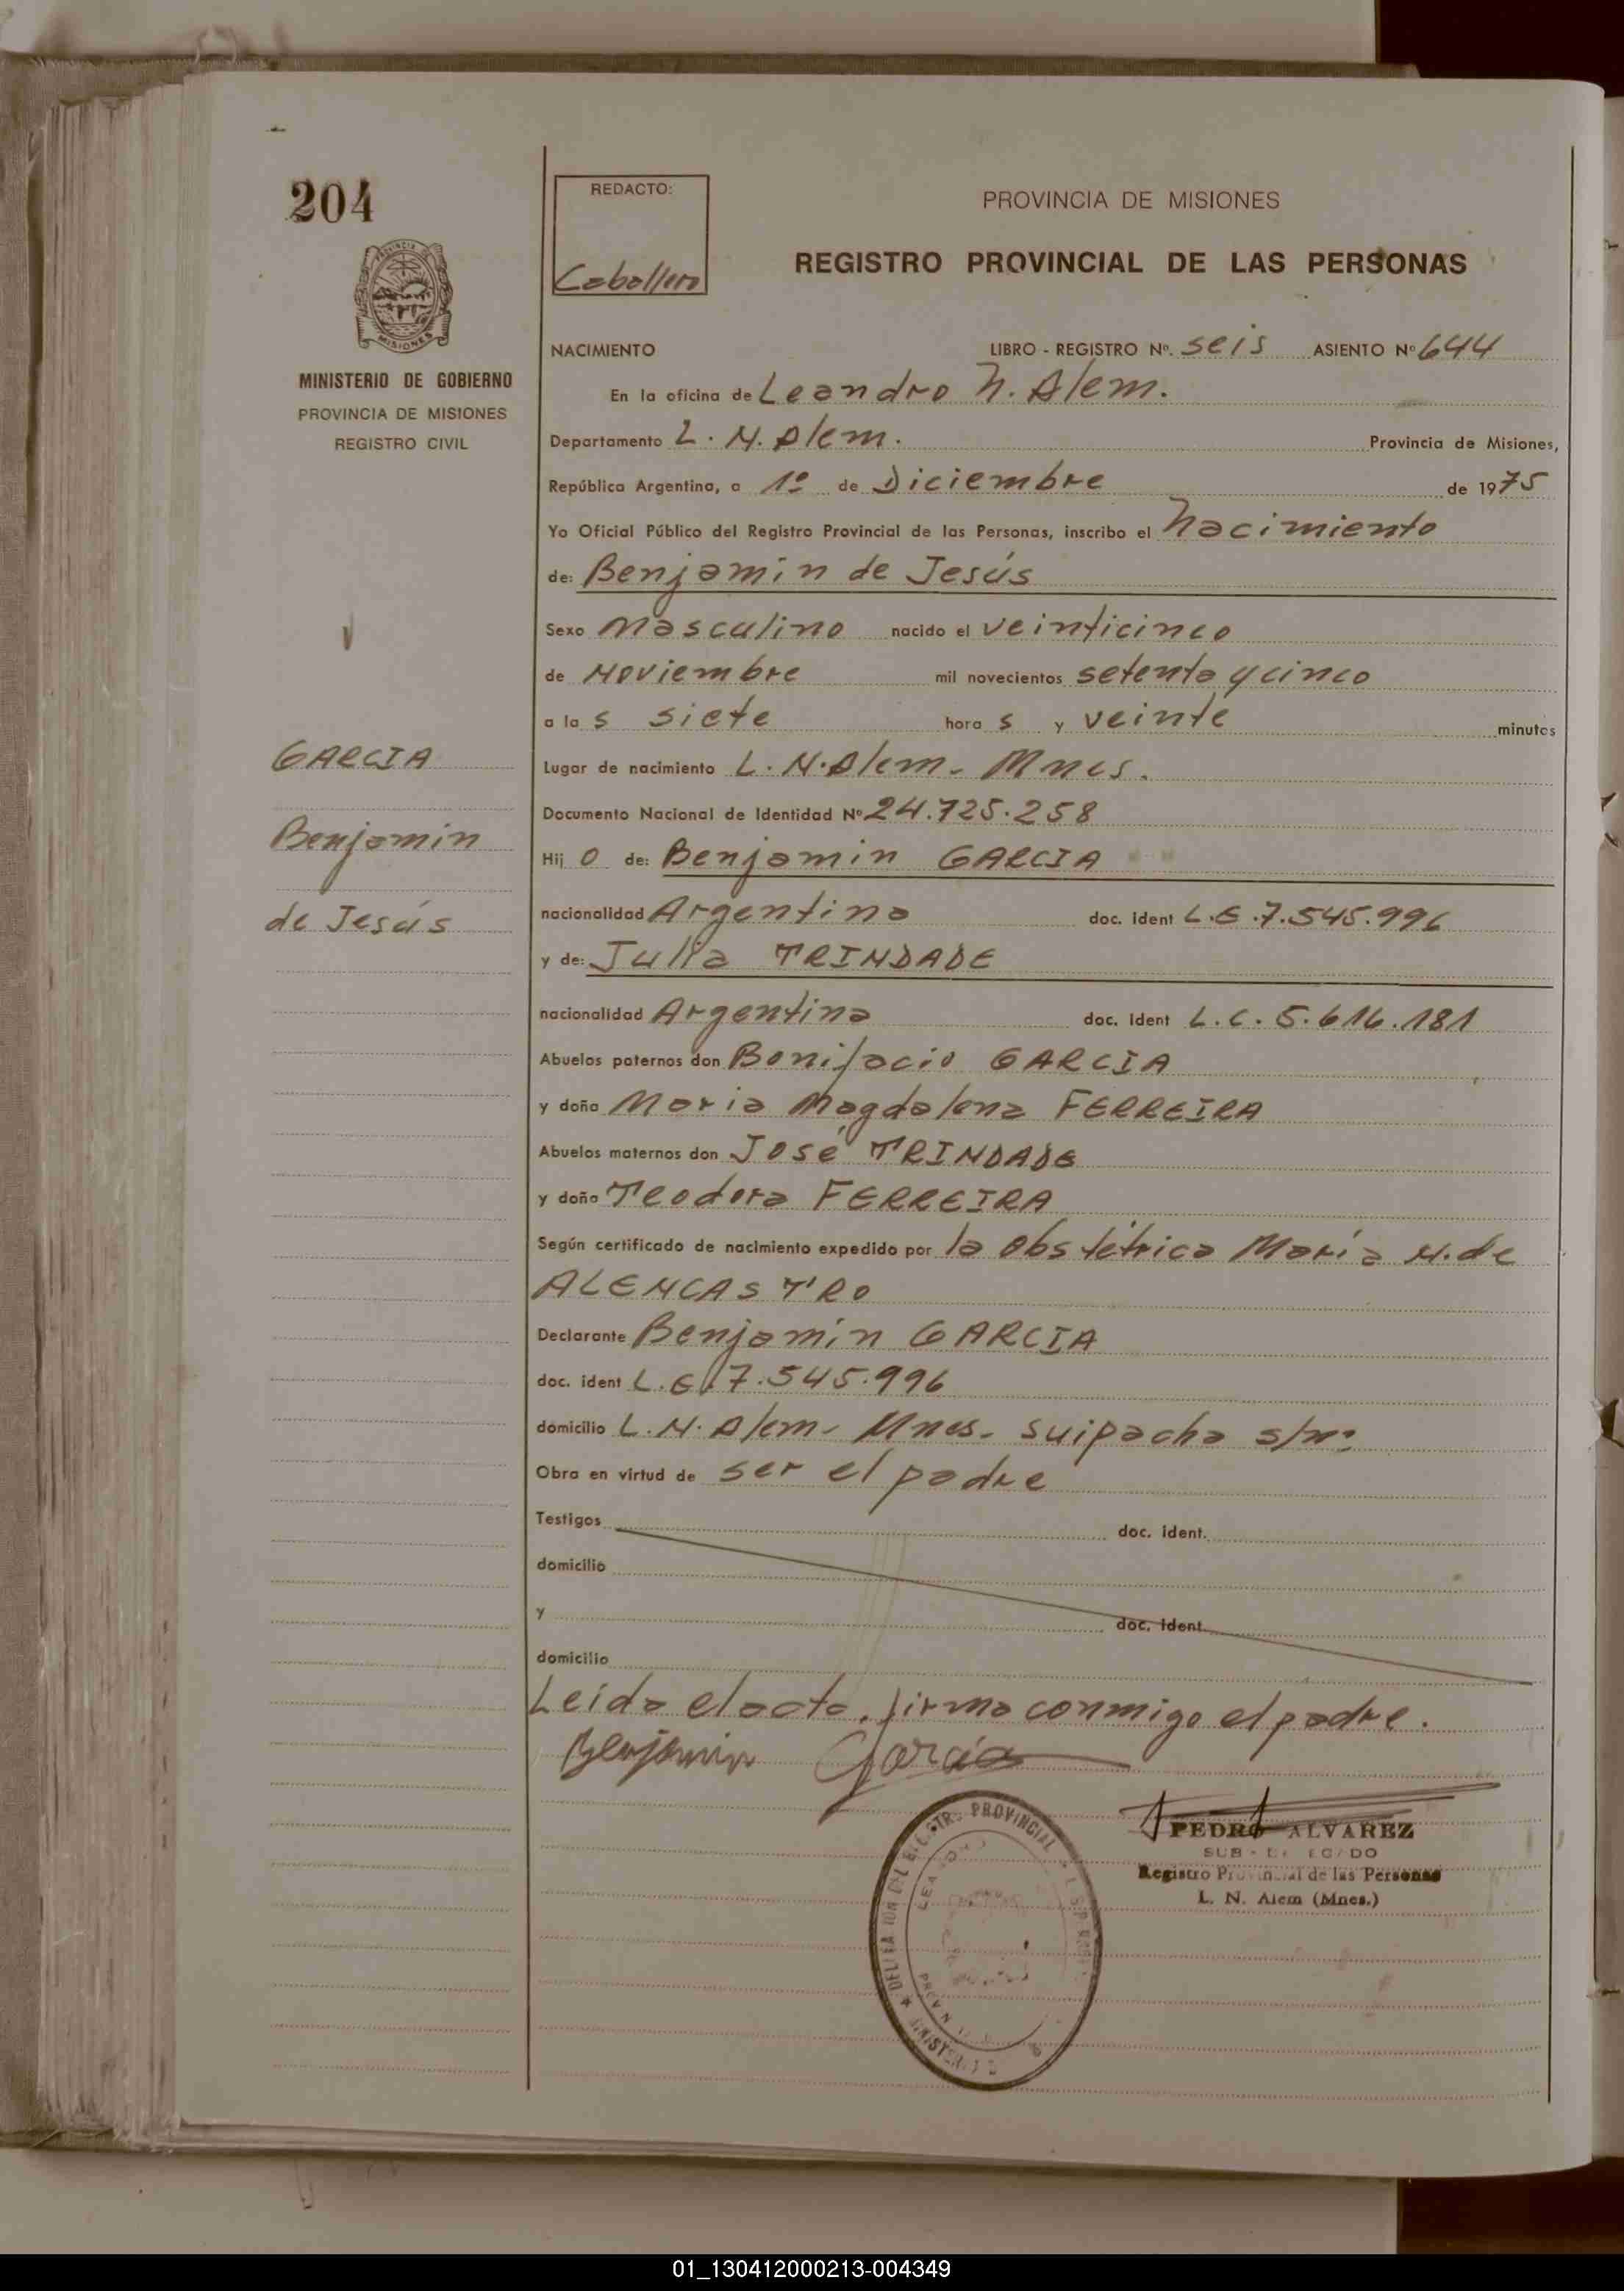 204
REDACTO:
Caballero
PROVINCIA DE MISIONES
REGISTRO PROVINCIAL DE LAS PERSONAS
MISIONES
MINISTERIO DE GOBIERNO
PROVINCIA DE MISIONES
REGISTRO CIVIL
NACIMIENTO LIBRO - REGISTRO Nº. seis ASIENTO Nº 644
En la oficina de Leandro N. Alem.
Departamento L. N. Alem. Provincia de Misiones,
República Argentina, a 1º de Diciembre de 1975
Yo Oficial Público del Registro Provincial de las Personas, inscribo el Nacimiento
de: Benjamin de Jesús
Sexo Masculino nacido el veinticinco
de Noviembre mil novecientos setenta y cinco
a la s siete hora s y veinte minutos
Lugar de nacimiento L. N. Alem - Mnes.
Documento Nacional de Identidad Nº 24.725.258
Hij o de: Benjamin GARCIA
nacionalidad Argentina doc. Ident L.E. 7.545.996
y de: Julia TRINDADE
nacionalidad Argentina doc. Ident L.C. 5.616.181
Abuelos paternos don Bonifacio GARCIA
y doña Maria Magdalena FERREIRA
Abuelos maternos don José TRINDADE
y doña Teodora FERREIRA
Según certificado de nacimiento expedido por la obstétrica María N. de
ALENCASTRO
Declarante Benjamín GARCIA
doc. ident L.E. 7.545.996
domicilio L. N. Alem - Mnes - suipacha s/nº
Obra en virtud de ser el padre
Testigos doc. ident.
domicilio
y doc. ident
domicilio
Leída el acta, firma conmigo el padre.
Benjamin Garcia
GARCIA
Benjamin
de Jesús
PEDRO ALVAREZ
Registro Provincial de las Personas
L. N. Alem (Mnes.)
PROVINCIAL
01_130412000213-004349